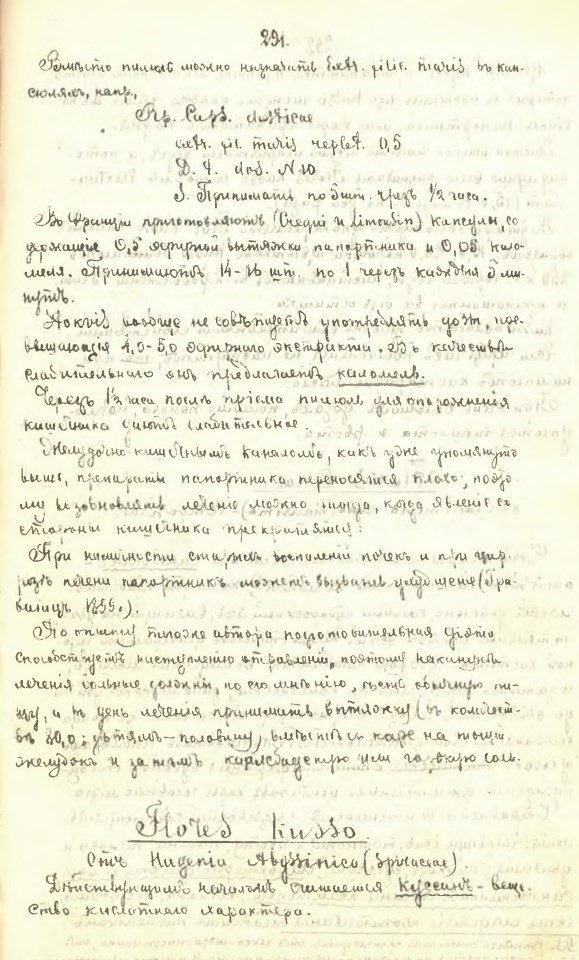 291.
Вмѣсто пилюль можно назначать Extr. filic. maris въ кап-
сюляхъ, напр.,
Rp. Caps. elasticae
extr. fil. maris replet. 0,5
D. t. dos. N 10
S. Принимать по 5 шт. чрезъ 1/2 часа.
Во Франціи приготовляютъ (Crequi и Limousin) капсулы, со-
держащіе 0,5 эфирной вытяжки папортника и 0,05 кало-
меля. Принимаютъ 14-16 шт. по 1 черезъ каждыя 5 ми-
нутъ.
вообще не совѣтуетъ употреблять дозы, пре-
вышающія 4,0-5,0 эфирнаго экстракта. Въ качествѣ
слабительнаго онъ предлагаетъ каломель.
Черезъ 1 1/2 часа послѣ пріема пилюль для опорожненія
кишечника даютъ слабительное.
Желудочно-кишечнымъ каналомъ, какъ уже упомянуто
выше, препараты папортника переносятся плохо, поэто-
му возобновлять леченіе можно тогда, когда явленіе со
стороны кишечника прекратятся.
При наличности старыхъ воспаленій почекъ и при цир-
розѣ печени папортникъ можетъ вызвать ухудшеніе (Гра-
вицъ 1899.).
По опыту того же автора послабительная діэта
способствуетъ наступленію отравленій, поэтому наканунѣ
леченія больные должны, по его мнѣнію, ѣсть обычную пи-
щу, а въ день леченія принимать вытяжку (въ количест-
вѣ 10,0; дѣтямъ - половину) вмѣстѣ съ кофе на тощій
желудокъ и затѣмъ карлсбадскую или горькую соль.
Flores Kusso.
Отъ Hagenia Abyssinica (Spiraeaceae).
Дѣйствующимъ началомъ считается Куссинъ - веще-
ство кислотнаго характера.